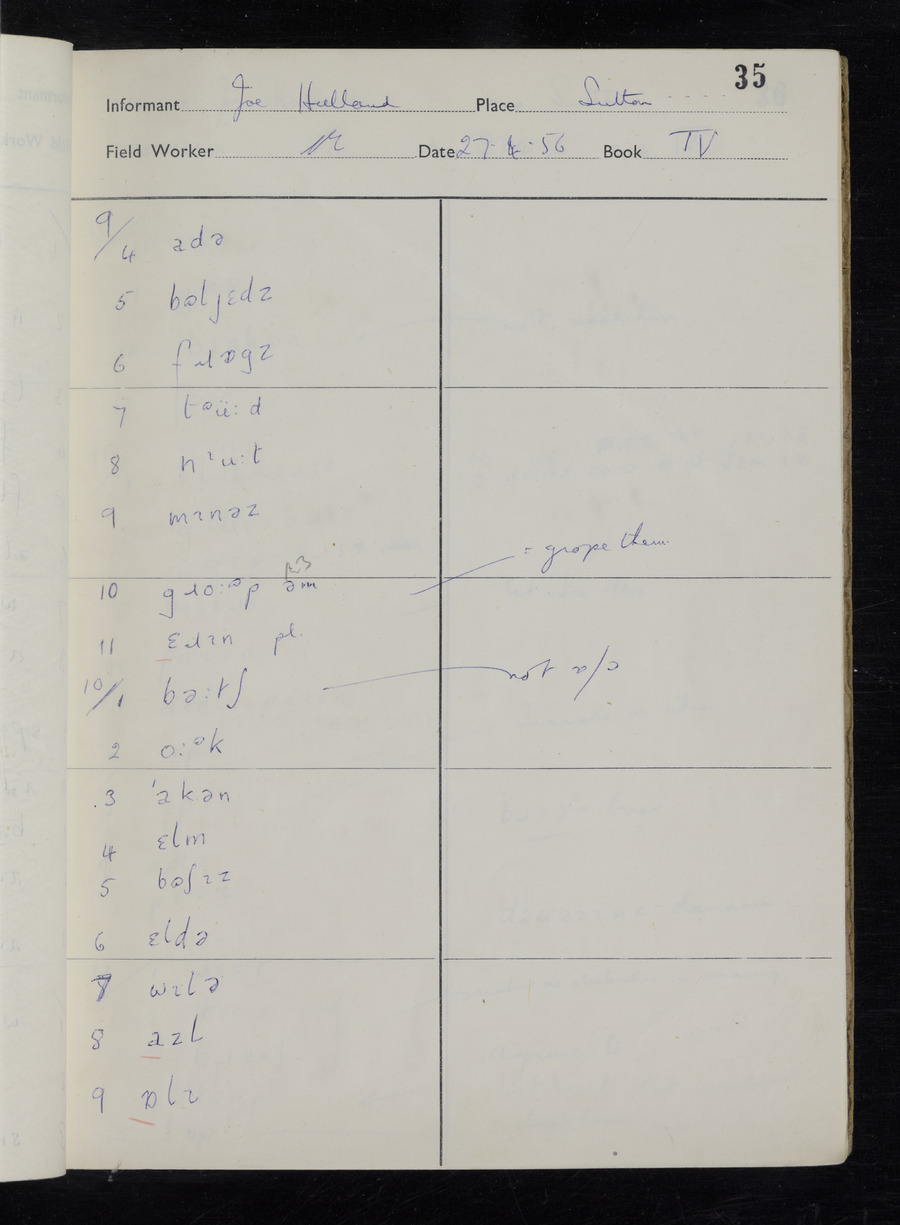 35
Informant Joe Hulland Place Sutton
Field Worker Date 27·4·56 Book IV
9/4 ædə
5 bəlɹɛdz
6 fɹɒgz
7 tᵊü:d
8 nᶦu:t
9 mɪnəz
= grope them
10 gɹo:ᵊp əm
11 ɛɹɪn pl.
10/1 bə:tʃ
not a/c
2 o:ᵊk
3 ˈækən
4 ɛlm
5 bəʃɪz
6 ɛldə
7 wɪlə
8 æzl
9 ɒlɪ